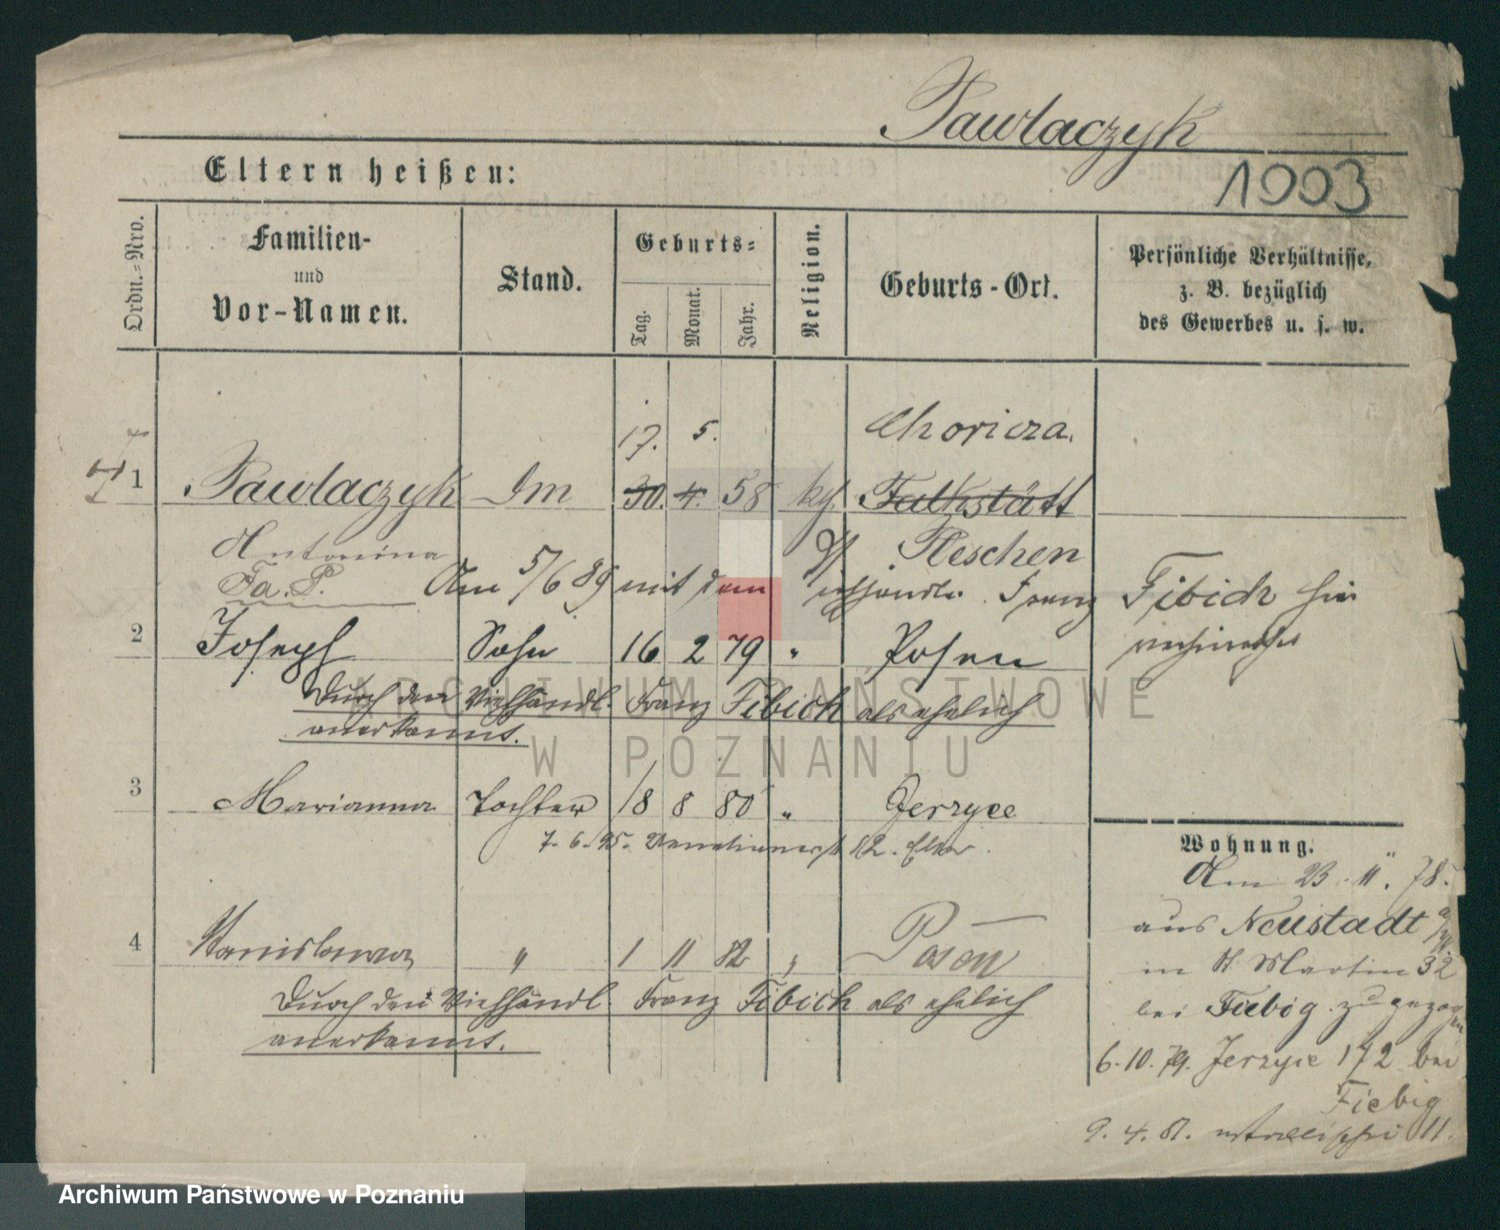 Pawlaczyk
Eltern heißen:
1003
Ordn.-Nro.
Familien-
und
Vor-Namen.
Stand.
Geburts-
Tag.
Monat.
Jahr.
Religion.
Geburts-Ort.
Persönliche Verhältnisse,
z. B. bezüglich
des Gewerbes u. s. w.
17. 5. Choricza.
1 Pawlaczyk 30. 4. 58 Falkstätt
Antonina Pleschen
Am 5/6 89 mit dem Viehhändler Franz Fibich hier
verheirathet
2 Joseph Sohn 16 2 79 " Posen
Durch den Viehhändl. Franz Fibich als ehelich
anerkannt.
3 Marianna Tochter 18 8 80 " Jerzyce
7. 6. 95. 12.
4 Stanislawa " 1 11 82 " Posen
Durch den Viehhändl. Franz Fibich als ehelich
anerkannt.
Wohnung.
Am 23. 11. 78.
aus Neustadt
in St Martin 32
bei Fiebig zugezogen
6. 10. 79. Jerzyce 172 bei
Fiebig
9. 4. 81. 11.
ARCHIWUM PAŃSTWOWE
W POZNANIU
Archiwum Państwowe w Poznaniu